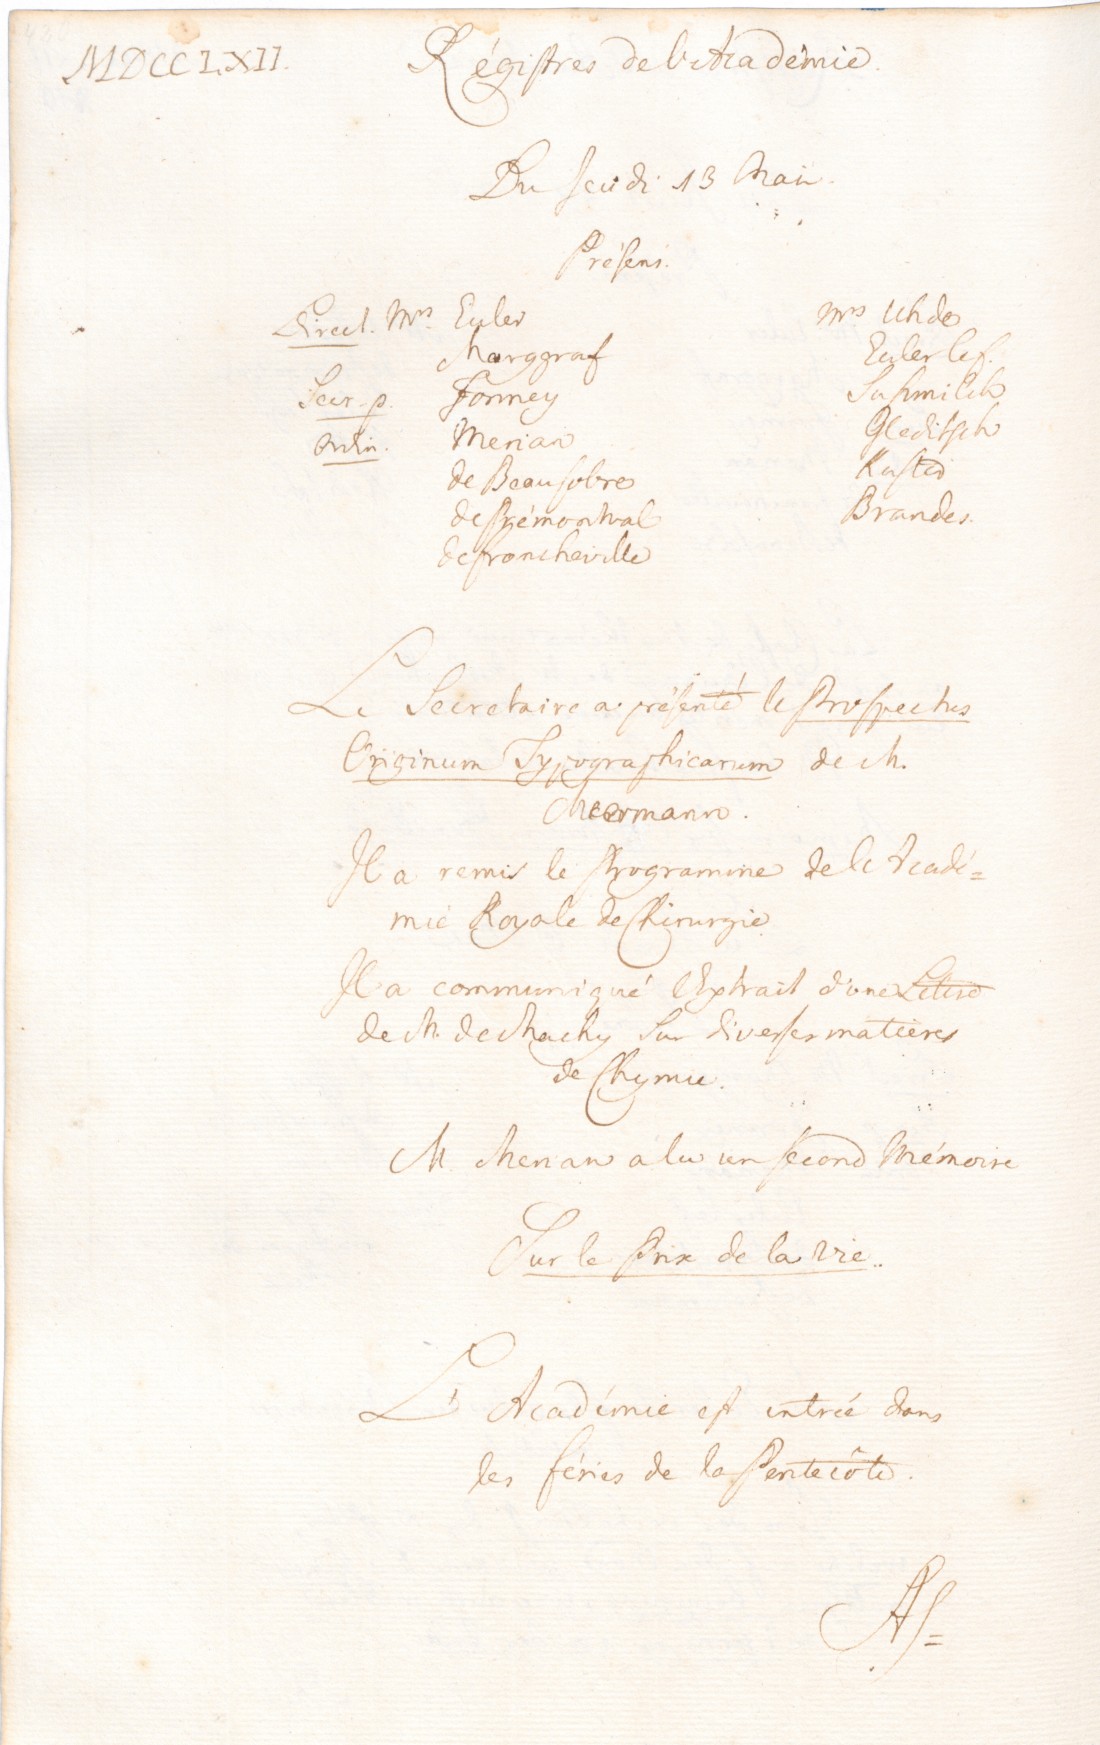 MDCCLXII.
Régistres de l'Académie.
Du Jeudi 13 Mai.
Présens.
Direct. Mrs. Euler
Marggraf
Secr. p. Formey
Ordin. Merian
de Beausobre
de Prémontval
de Francheville
Mrs Uhde
Euler le f.
Susmilch
Gleditsch
Kuster
Brandes.
Le Secretaire a présenté le Prospectus
Originum Typographicarum de M.
Meermann.
Il a remis le Programme de l'Acadé=
mie Royale de Chirurgie.
Il a communiqué l'Extrait d'une Lettre
de M. de Machy sur diverses matières
de Chymie.
M. Merian a lu un second Mémoire
Sur le Prix de la vie.
L'Académie est entrée dans
les féries de la Pentecôte.